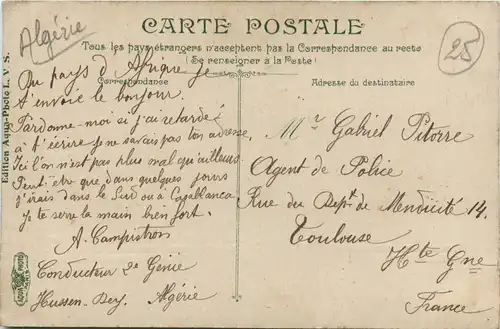 Algérie
25
CARTE POSTALE
Tous les pays étrangers n'acceptent pas la Correspondance au recto
(Se renseigner à la Poste)
Correspondance
Adresse du destinataire
Edition Aqua-Photo L. V. S.
Du pays d'Afrique je
t'envoie le bonjour.
Pardonne-moi si j'ai retardé
a t'écrire je ne savais pas ton adresse
Ici l'on n'est pas plus mal qu'ailleurs
Peut être que dans quelques jours
j'irais dans le Sud ou à Casablanca
Je te serre la main bien fort.
A. Campistron
Conducteur 2e Génie
Hussen-Dey. Algérie
Mr Gabriel Pitorre
Agent de Police
Rue du Dept de Mendicité 14.
Toulouse
Hte Gne
France
AQUA PHOTO